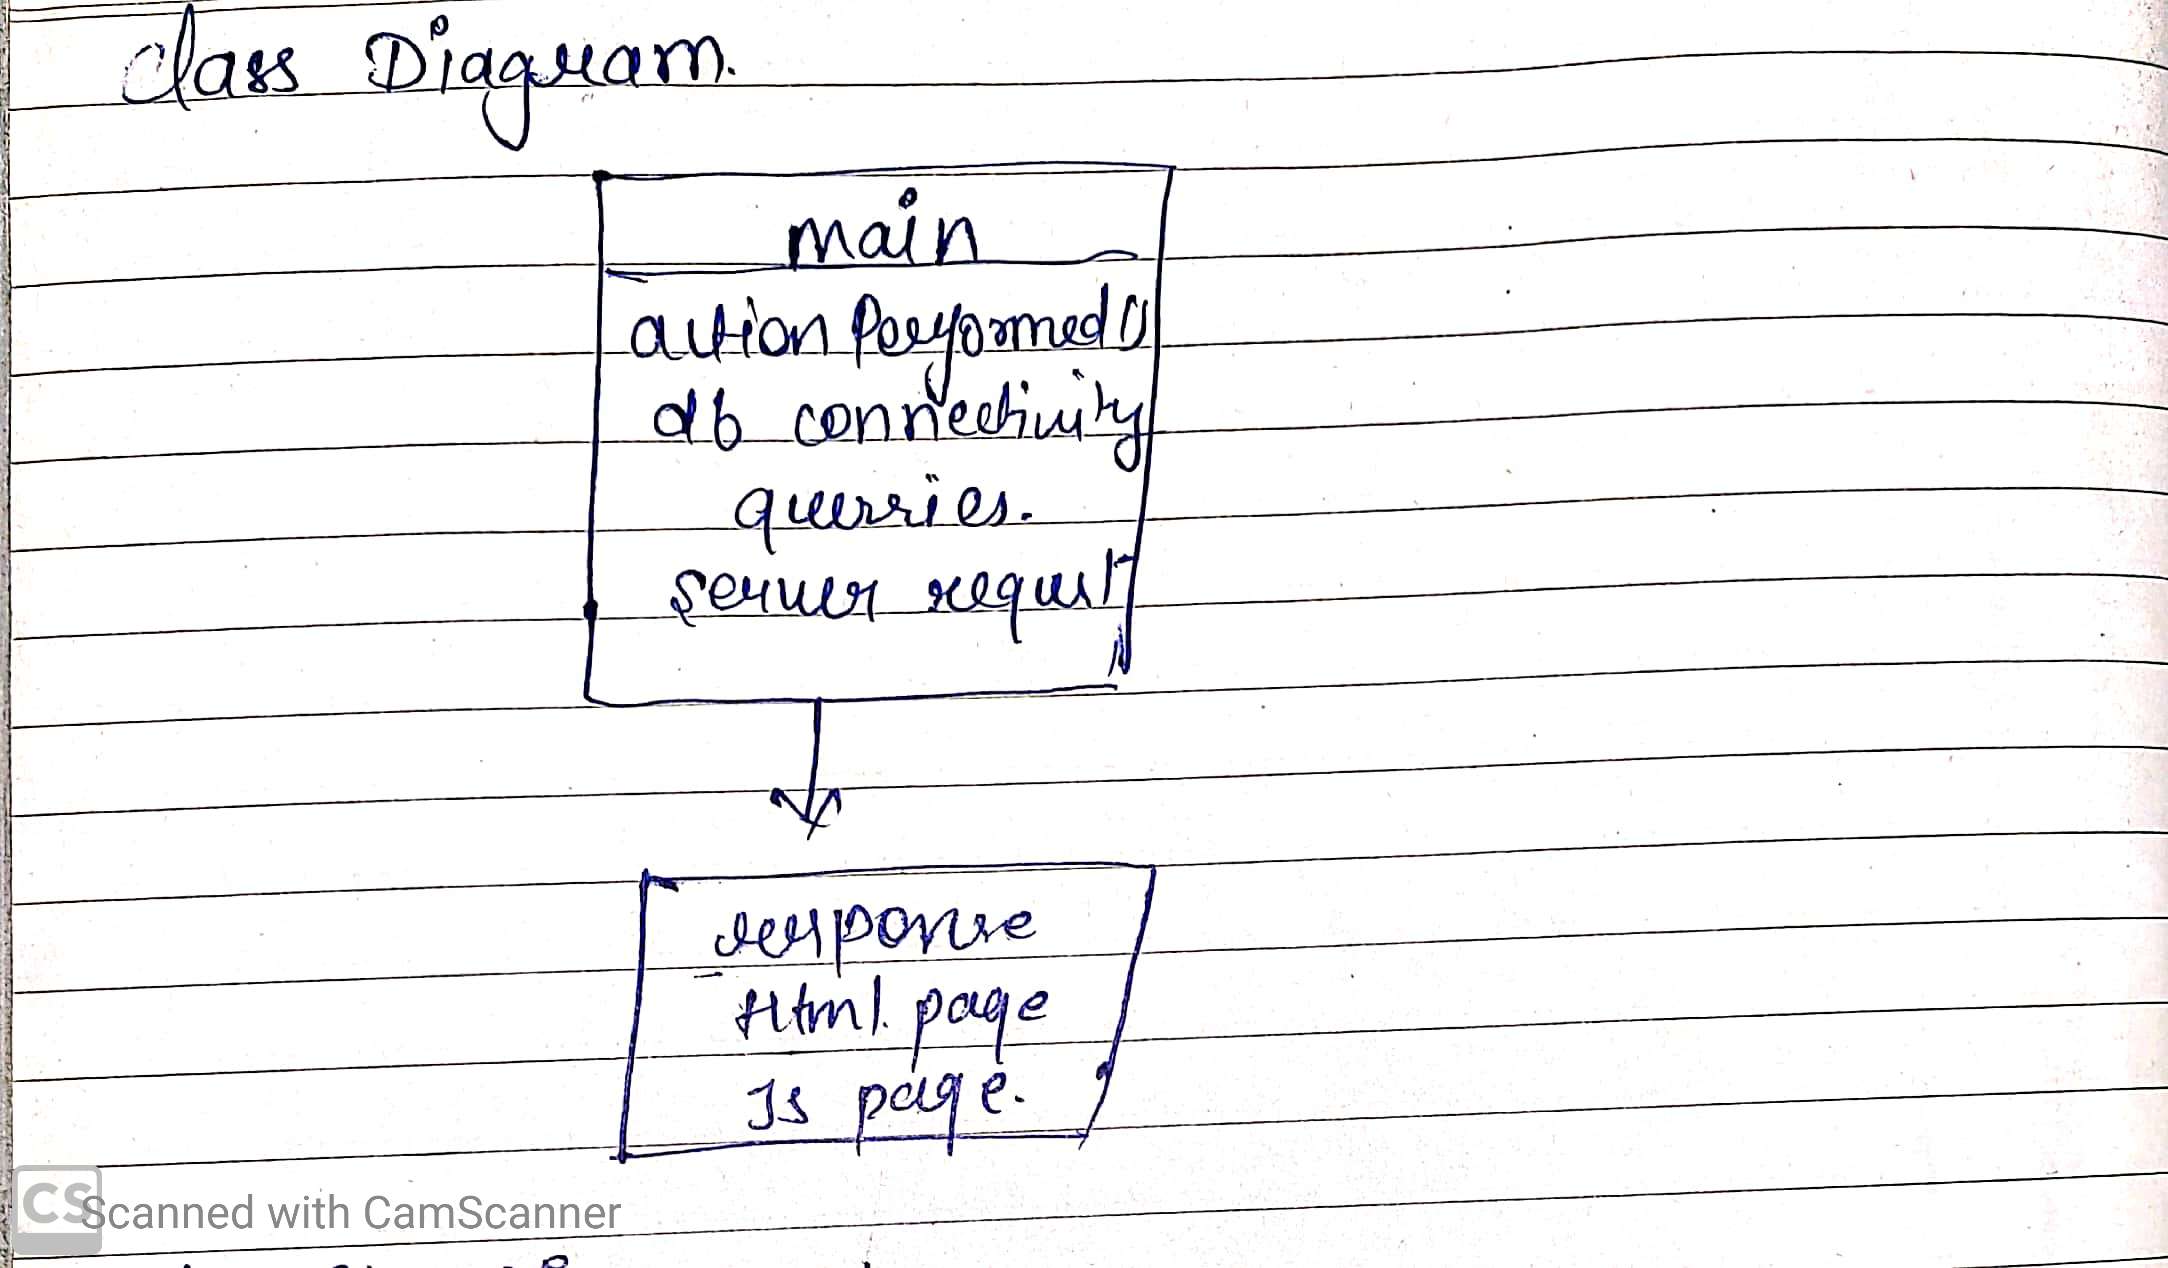 Class Diagram.
main
action Performed()
db connectivity
querries.
server requst
response
Html page
Js page.
CS Scanned with CamScanner